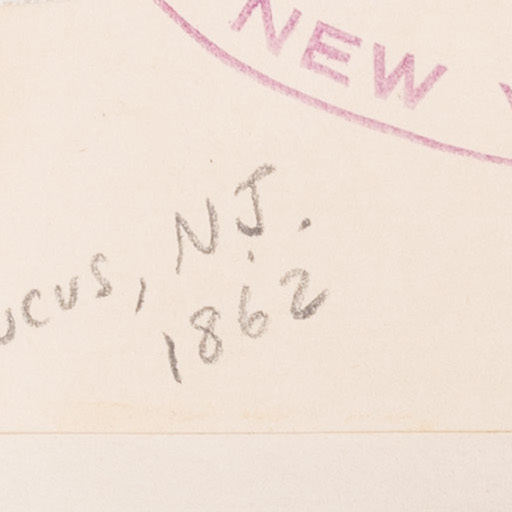 NEW
ucus, N.J.
1862